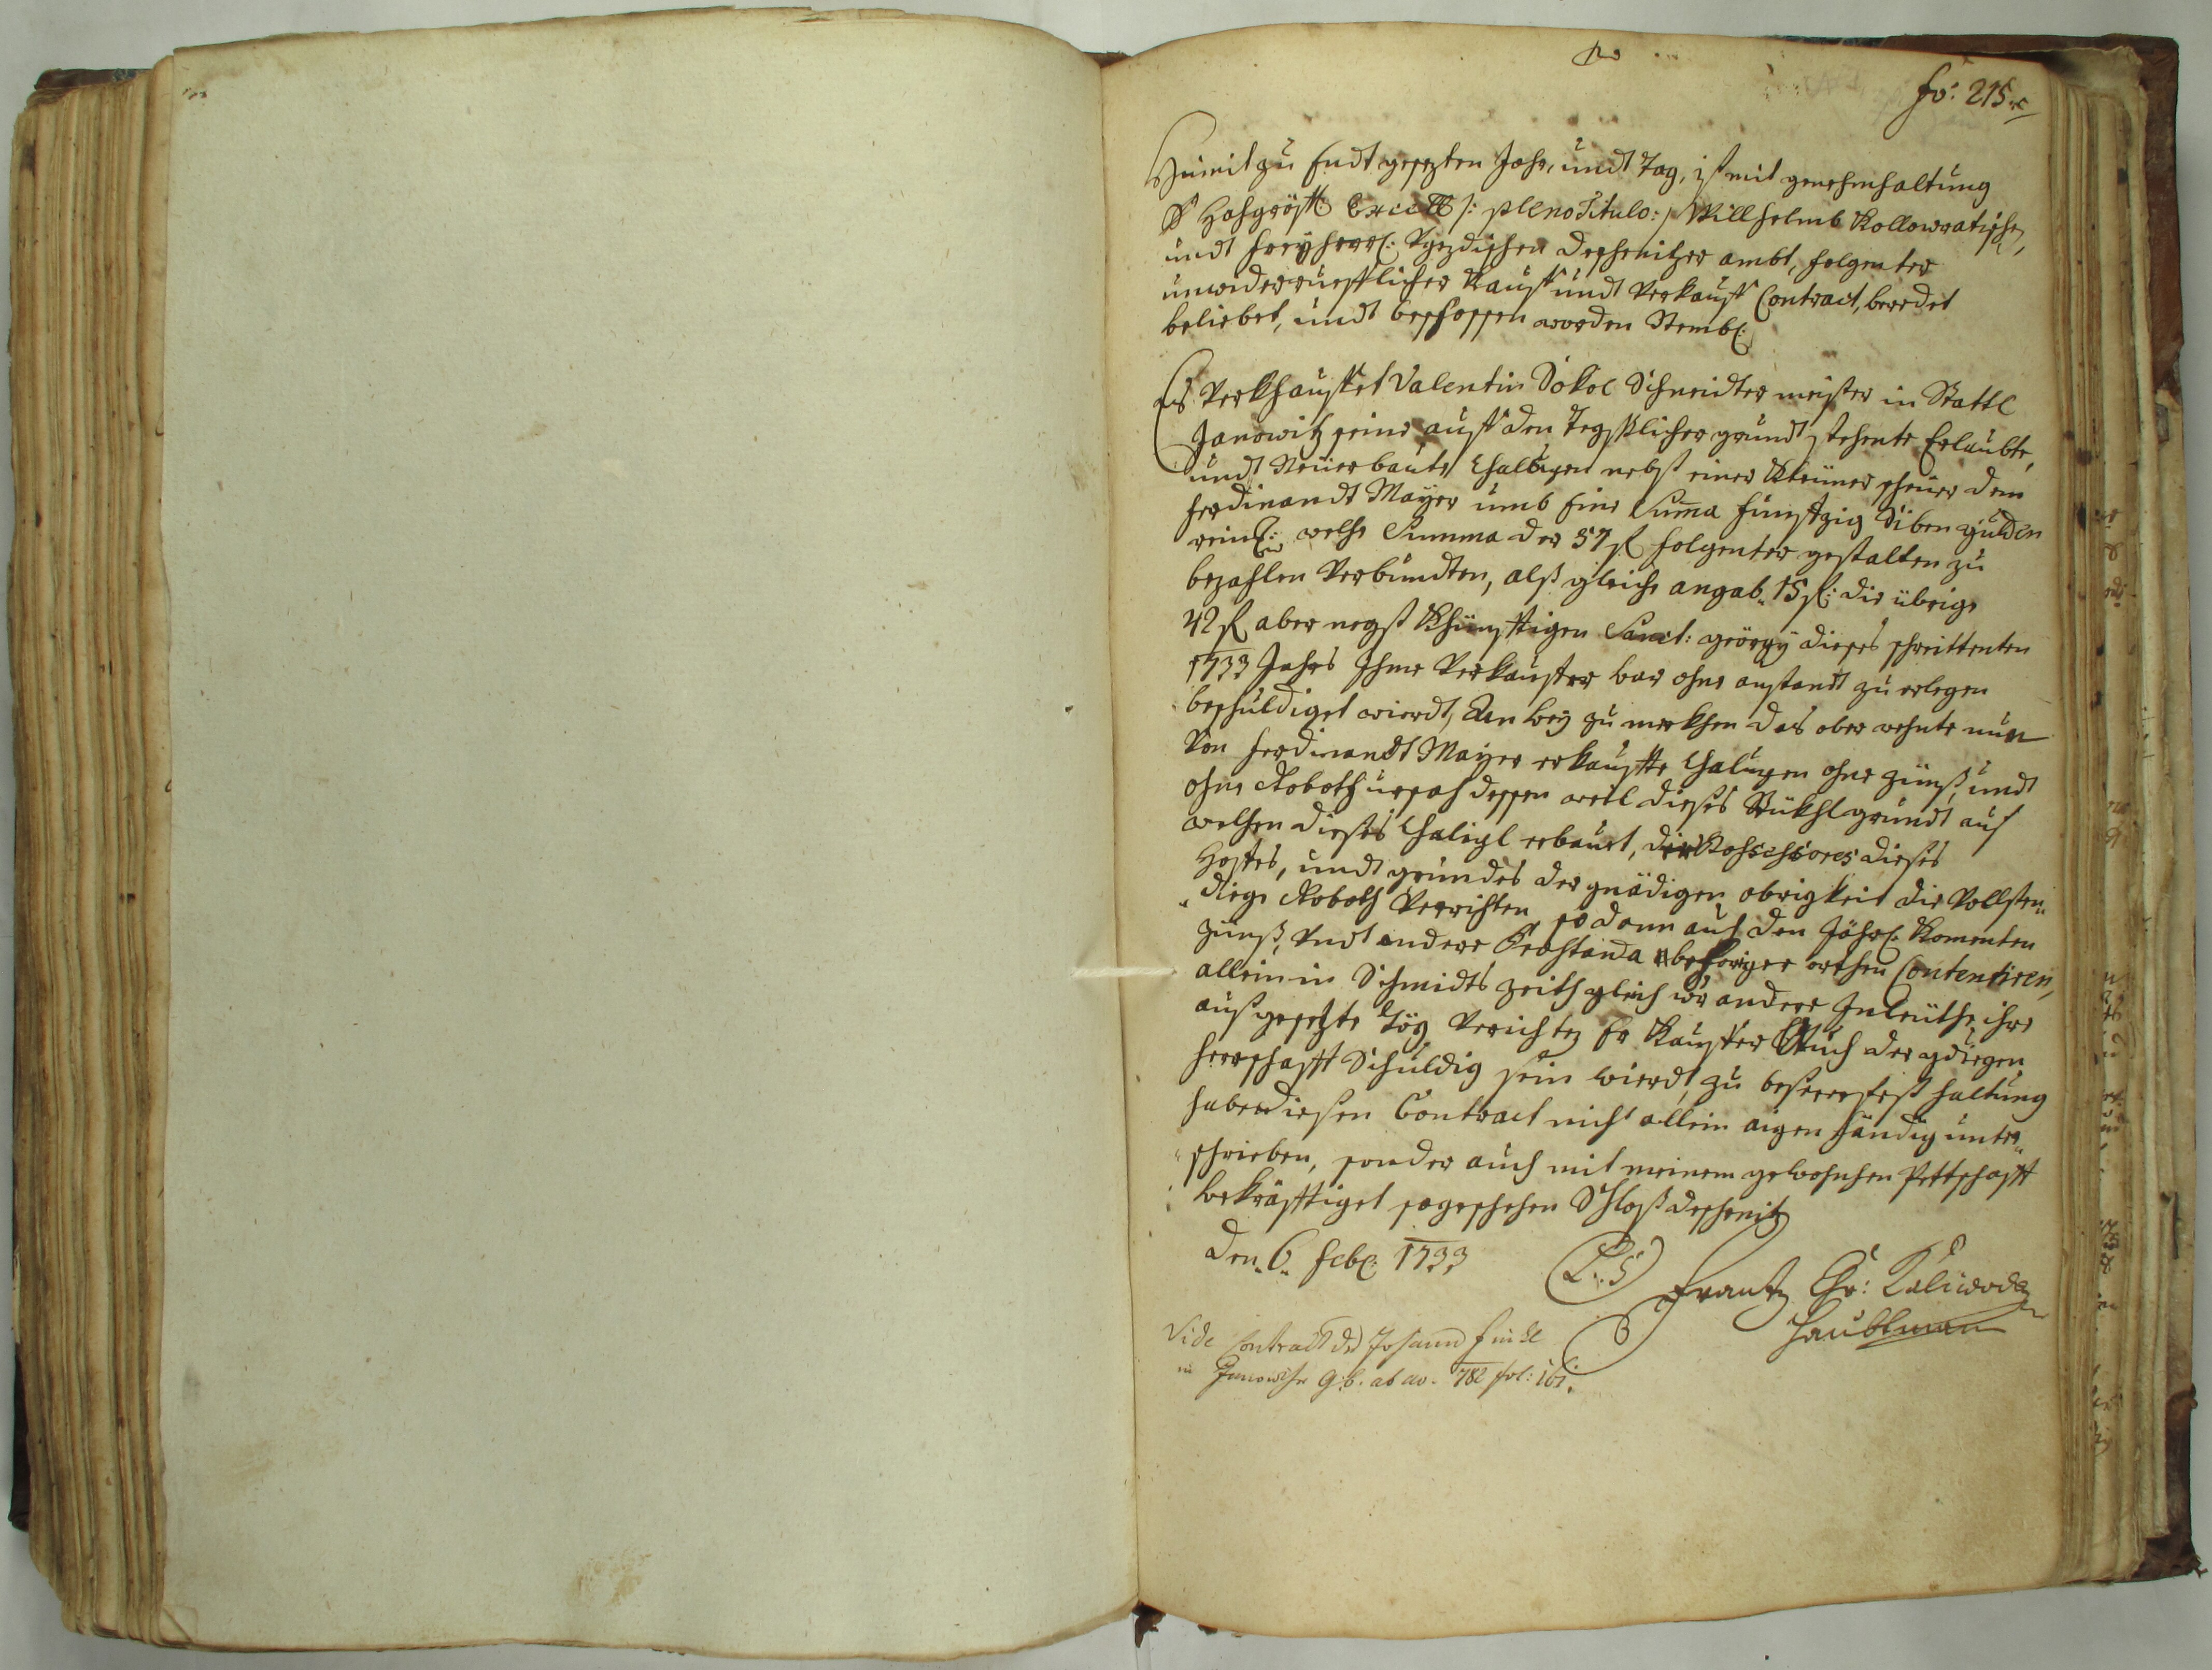 fo: 215
Heünt zu Endt gesezten Jahr, undt Tag, ist mit genehmhaltung
Hochgräffl: Excell /: pleno Titulo:/ Willhelmb Kollowratischen,
undt freyherrl: Deschenitzer ambt, folgenter
unwiderruefflicher Kauff undt Verkauff Contract, beredet
beliebet, undt beschossen worden Nembl:
Es Verkhauffet Valentin Sokol Schneidter meister in Stattl
Janowitz seine auff den grundt stehente Erlaubte,
undt Neüerbaute Chaluppen nebst einer Kleiner scheuer dem
Ferdinandt Mayer umb Eine Suma Funffzig Siben gulden
rein: welche Summa der 57 fl folgenter gestalten zu
bezahlen Verbundten, alß gleich angab. 15 fl: die übrige
42 fl aber negst Khünfftigen Sanct: Georgy dieses schreittenten
1733 Jahrs Ihme Verkauffer bar ohne anstandt zu erlegen
beschuldiget wierdt, Dan bey zu merkhen das ober wehnte nun
Von Ferdinandt Mayer erkauffte Chaluppen ohne Zünß, undt
ohne Roboth ursach dessen weil dieses Stükhl grundt auf
welchen dieses Chalupl erbauet, die Possessores dieses
Hoffes, undt grundes der gnädigen obrigkeit die Vollsten,,
,,dige Roboth Verrichten, so dann auch den Jährl: Komenten
Zünß, Undt andere Prastanda behöriger orthen Contentiren,
allein in Schnidts zeith gleich wie andere Inleuthe ihre
außgesetzte Tög Verrichten Er Kauffer Auch der gdigen
herrschafft Schuldig sein wierdt, zu besserer fest haltung
habe diesen Contract nicht allein aigen händig unter,,
,,schrieben, sonder auch mit meinem gewohnhen Pettschafft
bekräfftiget so geschehen Schloß Deschenitz
den 6 Feb: 1733
L:S
Frantz Chr: Kaliwoda
Haubtman
Vide Contract des Johann
in Janowitzer G:b. ab ao. 782 fol: 161.